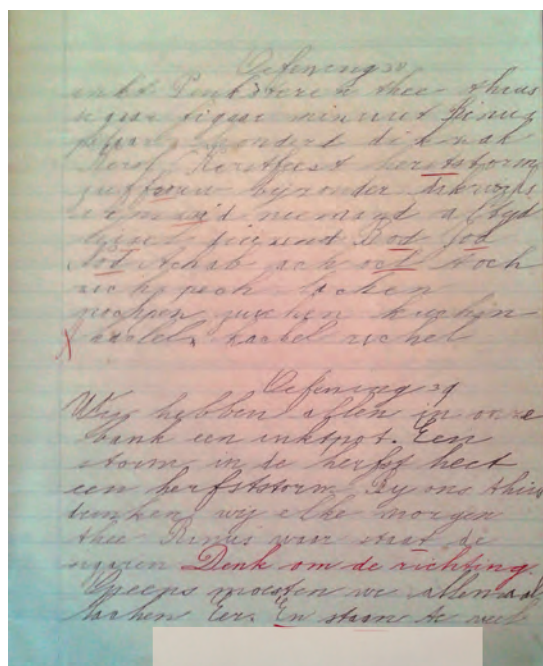 Oefening 38
inkt Pinksteren thee thuis
sigaar figuur minuut Rinus
honderd
Kerst Kerstfeest herfststorm
juffrouw bijzonder
iemand niemand altijd
Bod God
tot Achab ach och toch
zich pech lachen
pochpen juichen kuchen
kachel kachel richel
Oefening 39
Wij hebben allen in onze
bank een inktpot. Een
storm in de herfst heet
een herfststorm. Bij ons thuis
drinken wij elke morgen
thee Rinus waar staat de
sigaren Denk om de richting.
Opeens moesten we allemaal
lachen Eer. En staan te veel